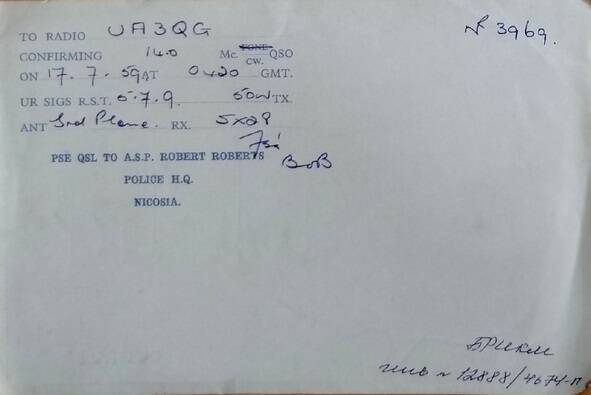 № 3969.
TO RADIO UA3QG
CONFIRMING 14.0 Mc. FONE CW. QSO
ON 17.7.59 AT 0420 GMT.
UR SIGS R.S.T. 5.7.9. 50W TX.
ANT Grd Plane. RX. SX28
73s
BoB
PSE QSL TO A.S.P. ROBERT ROBERTS
POLICE H.Q.
NICOSIA.
БРИКМ
инв № 12888/4674-п